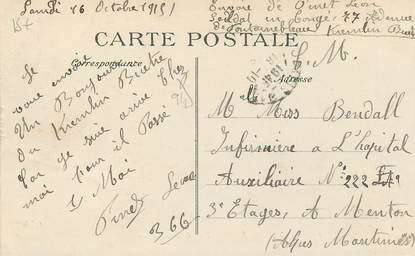 Samdi 16 Octobre 1915
Envoie de Pinet Léon
Soldat en Congé 77 Avenue
de Fontainebleau Kremlin Bicêt
CARTE POSTALE
F. M.
Correspondance
Adresse
Je
vous envoie
Un Bonjour
du Kremlin Bicètre
Car je suis arrivé Chez
moi pour il Passé
1 Moi
Pinet Léon
366
Melle Miss Bendall
Infirmière a L'hopital
Auxiliaire No 222
3e Etages, A Menton
(Alpes Maritimes)